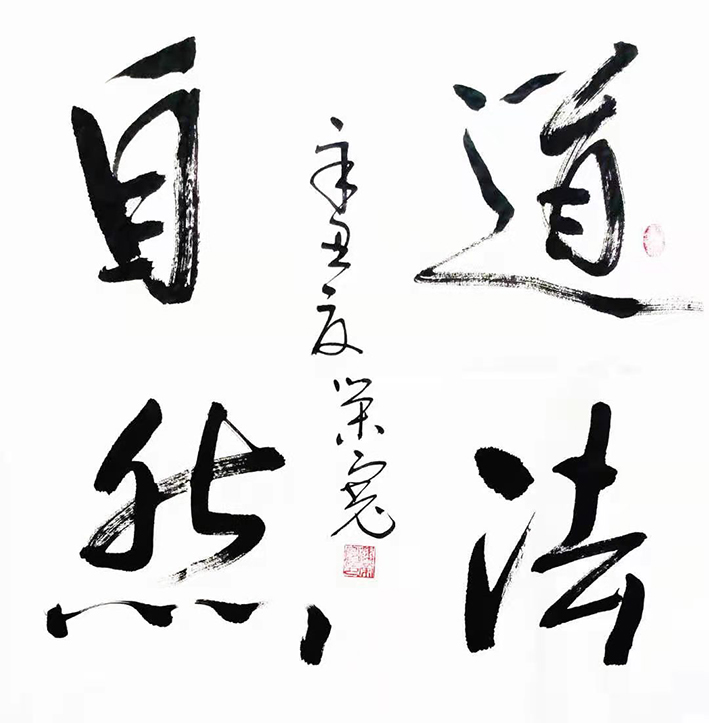 道法
自然
辛丑夏荣宽